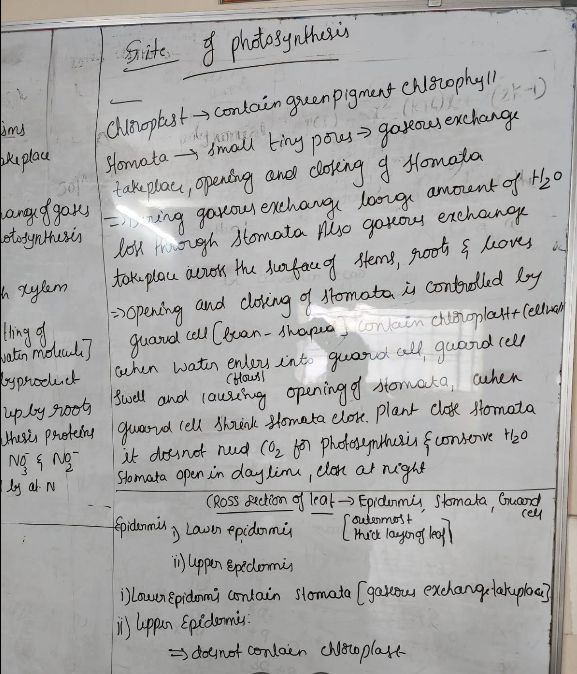 Site of photosynthesis
Chloroplast → contain green pigment chlorophyll
Stomata → small tiny pores → gaseous exchange
take place, opening and closing of stomata
⇒ During gaseous exchange large amount of H2O
loss through stomata Also gaseous exchange
take place across the surface of stems, roots & leaves
⇒ opening and closing of stomata is controlled by
guard cell [bean-shaped] contain chloroplast + cellwall
when water enters into guard cell, guard cell
(flows)
swell and causing opening of stomata, when
guard cell shrink stomata close. plant close stomata
it doesnot need CO2 for photosynthesis & conserve H2O
Stomata open in daytime, close at night
Cross section of leaf → Epidermis, Stomata, Guard cell
Epidermis i) Lower epidermis [outermost thick layer of leaf]
ii) upper epidermis
i) Lower Epidermis contain stomata [gaseous exchange takeplace]
ii) upper Epidermis:
⇒ doesnot contain chloroplast
ake place
ange of gases
otosynthesis
h xylem
tting of
water molecule]
byproduct
up by roots
thesis proteins
NO3- & NO2-